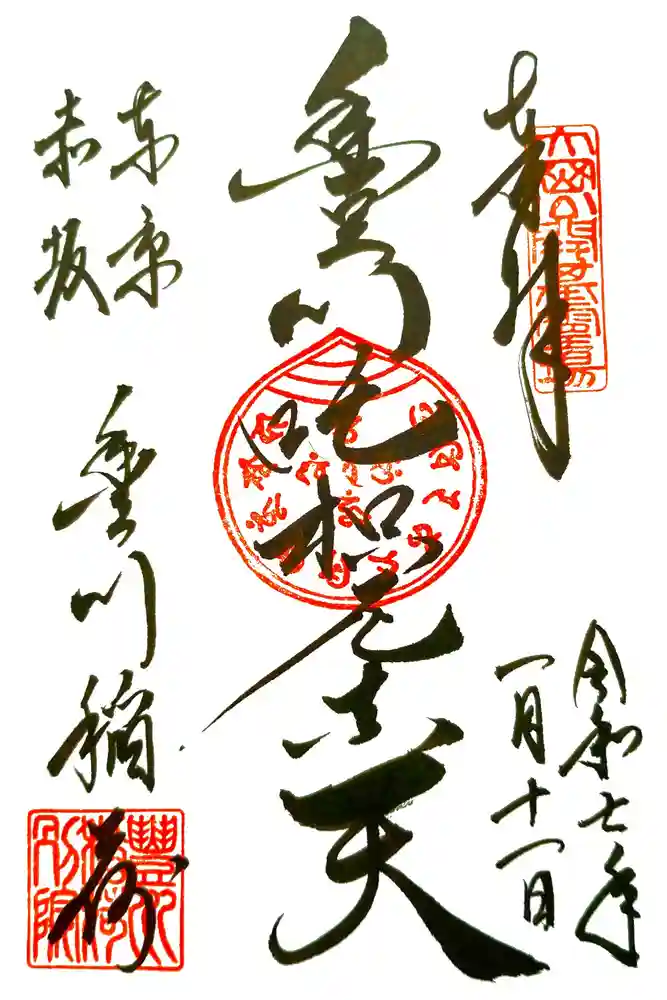 奉拝
令和七年
一月十一日
豊川吒枳尼真天
東京
赤坂
豊川稲荷
豐川
稲荷
別院